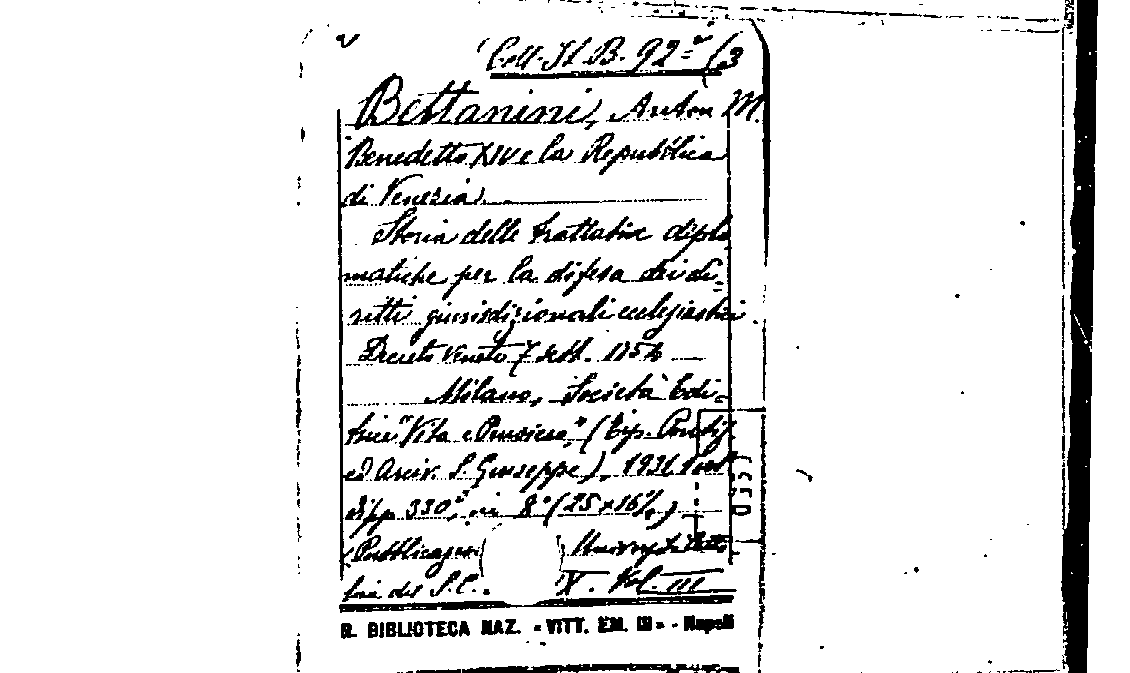 Coll. It. B. 92 (3
Bettanini, Anton M.
Benedetto XIV e la Repubblica
di Venezia
Storia delle trattative diplo
matiche per la difesa dei di=
ritti giurisdizionali ecclesiastici
Decreto Veneto 7 sett. 1754
Milano, Società Edi=
trice "Vita e Pensiero" (Tip. Pontif.
ed Arciv. S. Giuseppe), 1931
di pp. 330, in 8° (25 x 16½)
(Pubblicazioni
del S.C. X. Vol. III
R. BIBLIOTECA NAZ. - VITT. EM. III - Napoli